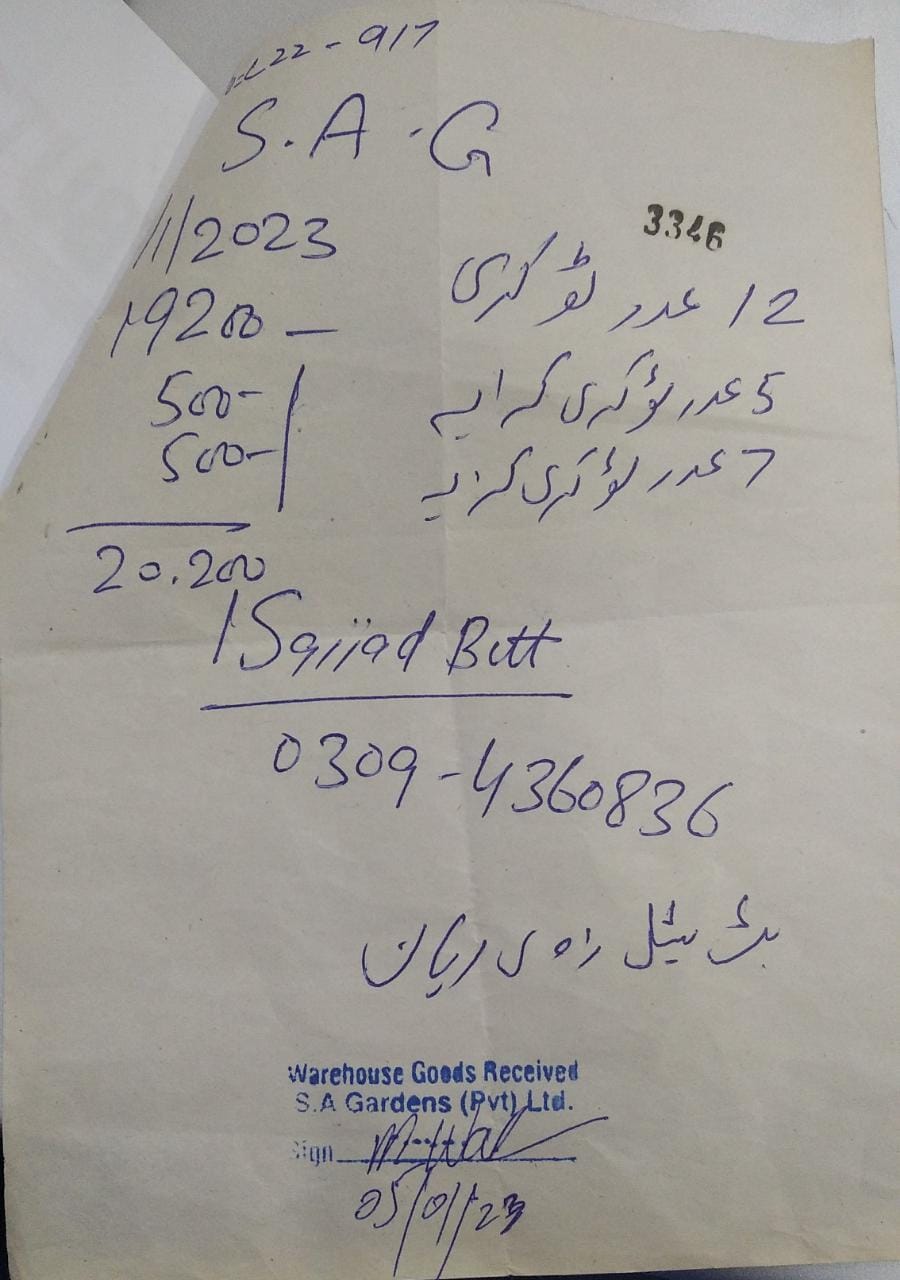 22-917
S.A.G
1/2023
3346
19200 — 12 عدد ٹوکری
500- 5 عدد ٹوکری کرایہ
500- 7 عدد ٹوکری کرایہ
20.200
Sajjad Butt
0309-4360836
بٹ
Warehouse Goods Received
S.A Gardens (Pvt) Ltd.
Sign
05/01/23